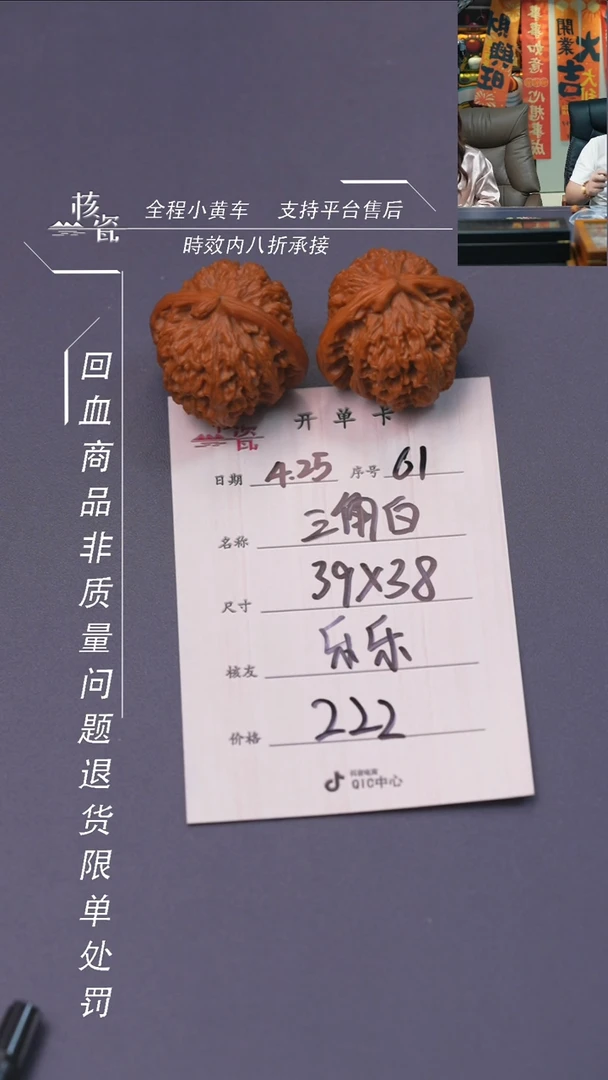 核瓷
全程小黄车 支持平台售后
時效内八折承接
回血商品非质量问题退货限单处罚
開業大吉
事事如意心想事成
財興旺
大利
瓷
开单卡
日期 4.25 序号 61
名称 三角白
尺寸 39X38
核友 乐乐
价格 222
QIC中心